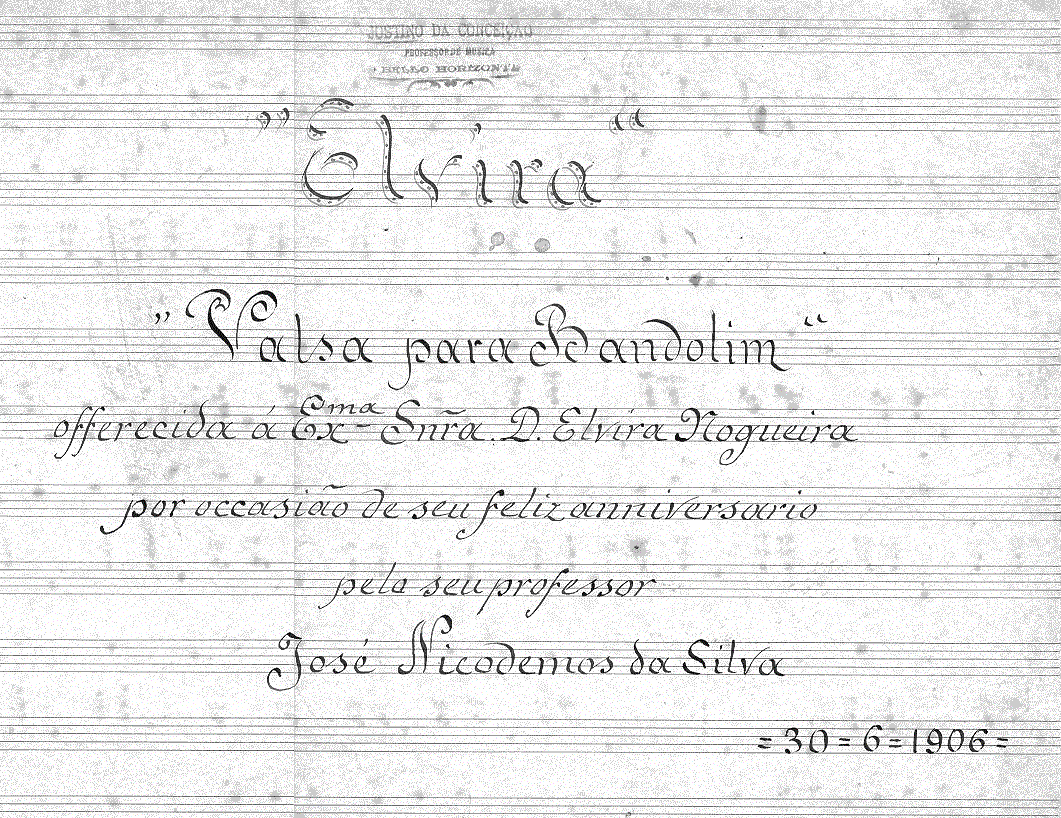 JUSTINO DA CONCEIÇÃO
PROFESSOR DE MUSICA
BELLO HORIZONTE
"Elvira"
"Valsa para Bandolim"
offerecida á Exma Snrã. D. Elvira Nogueira
por occasião de seu feliz anniversario
pelo seu professor
José Nicodemos da Silva
=30=6=1906=